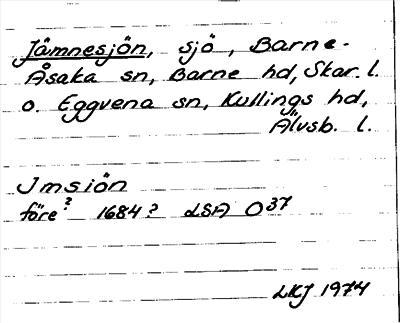 Jämnesjön, sjö, Barne-
Åsaka sn, Barne hd, Skar. l.
o. Eggvena sn, Kullings hd,
Älvsb. l.
Jmsiön
före? 1684? LSA O 37
LKJ 1974